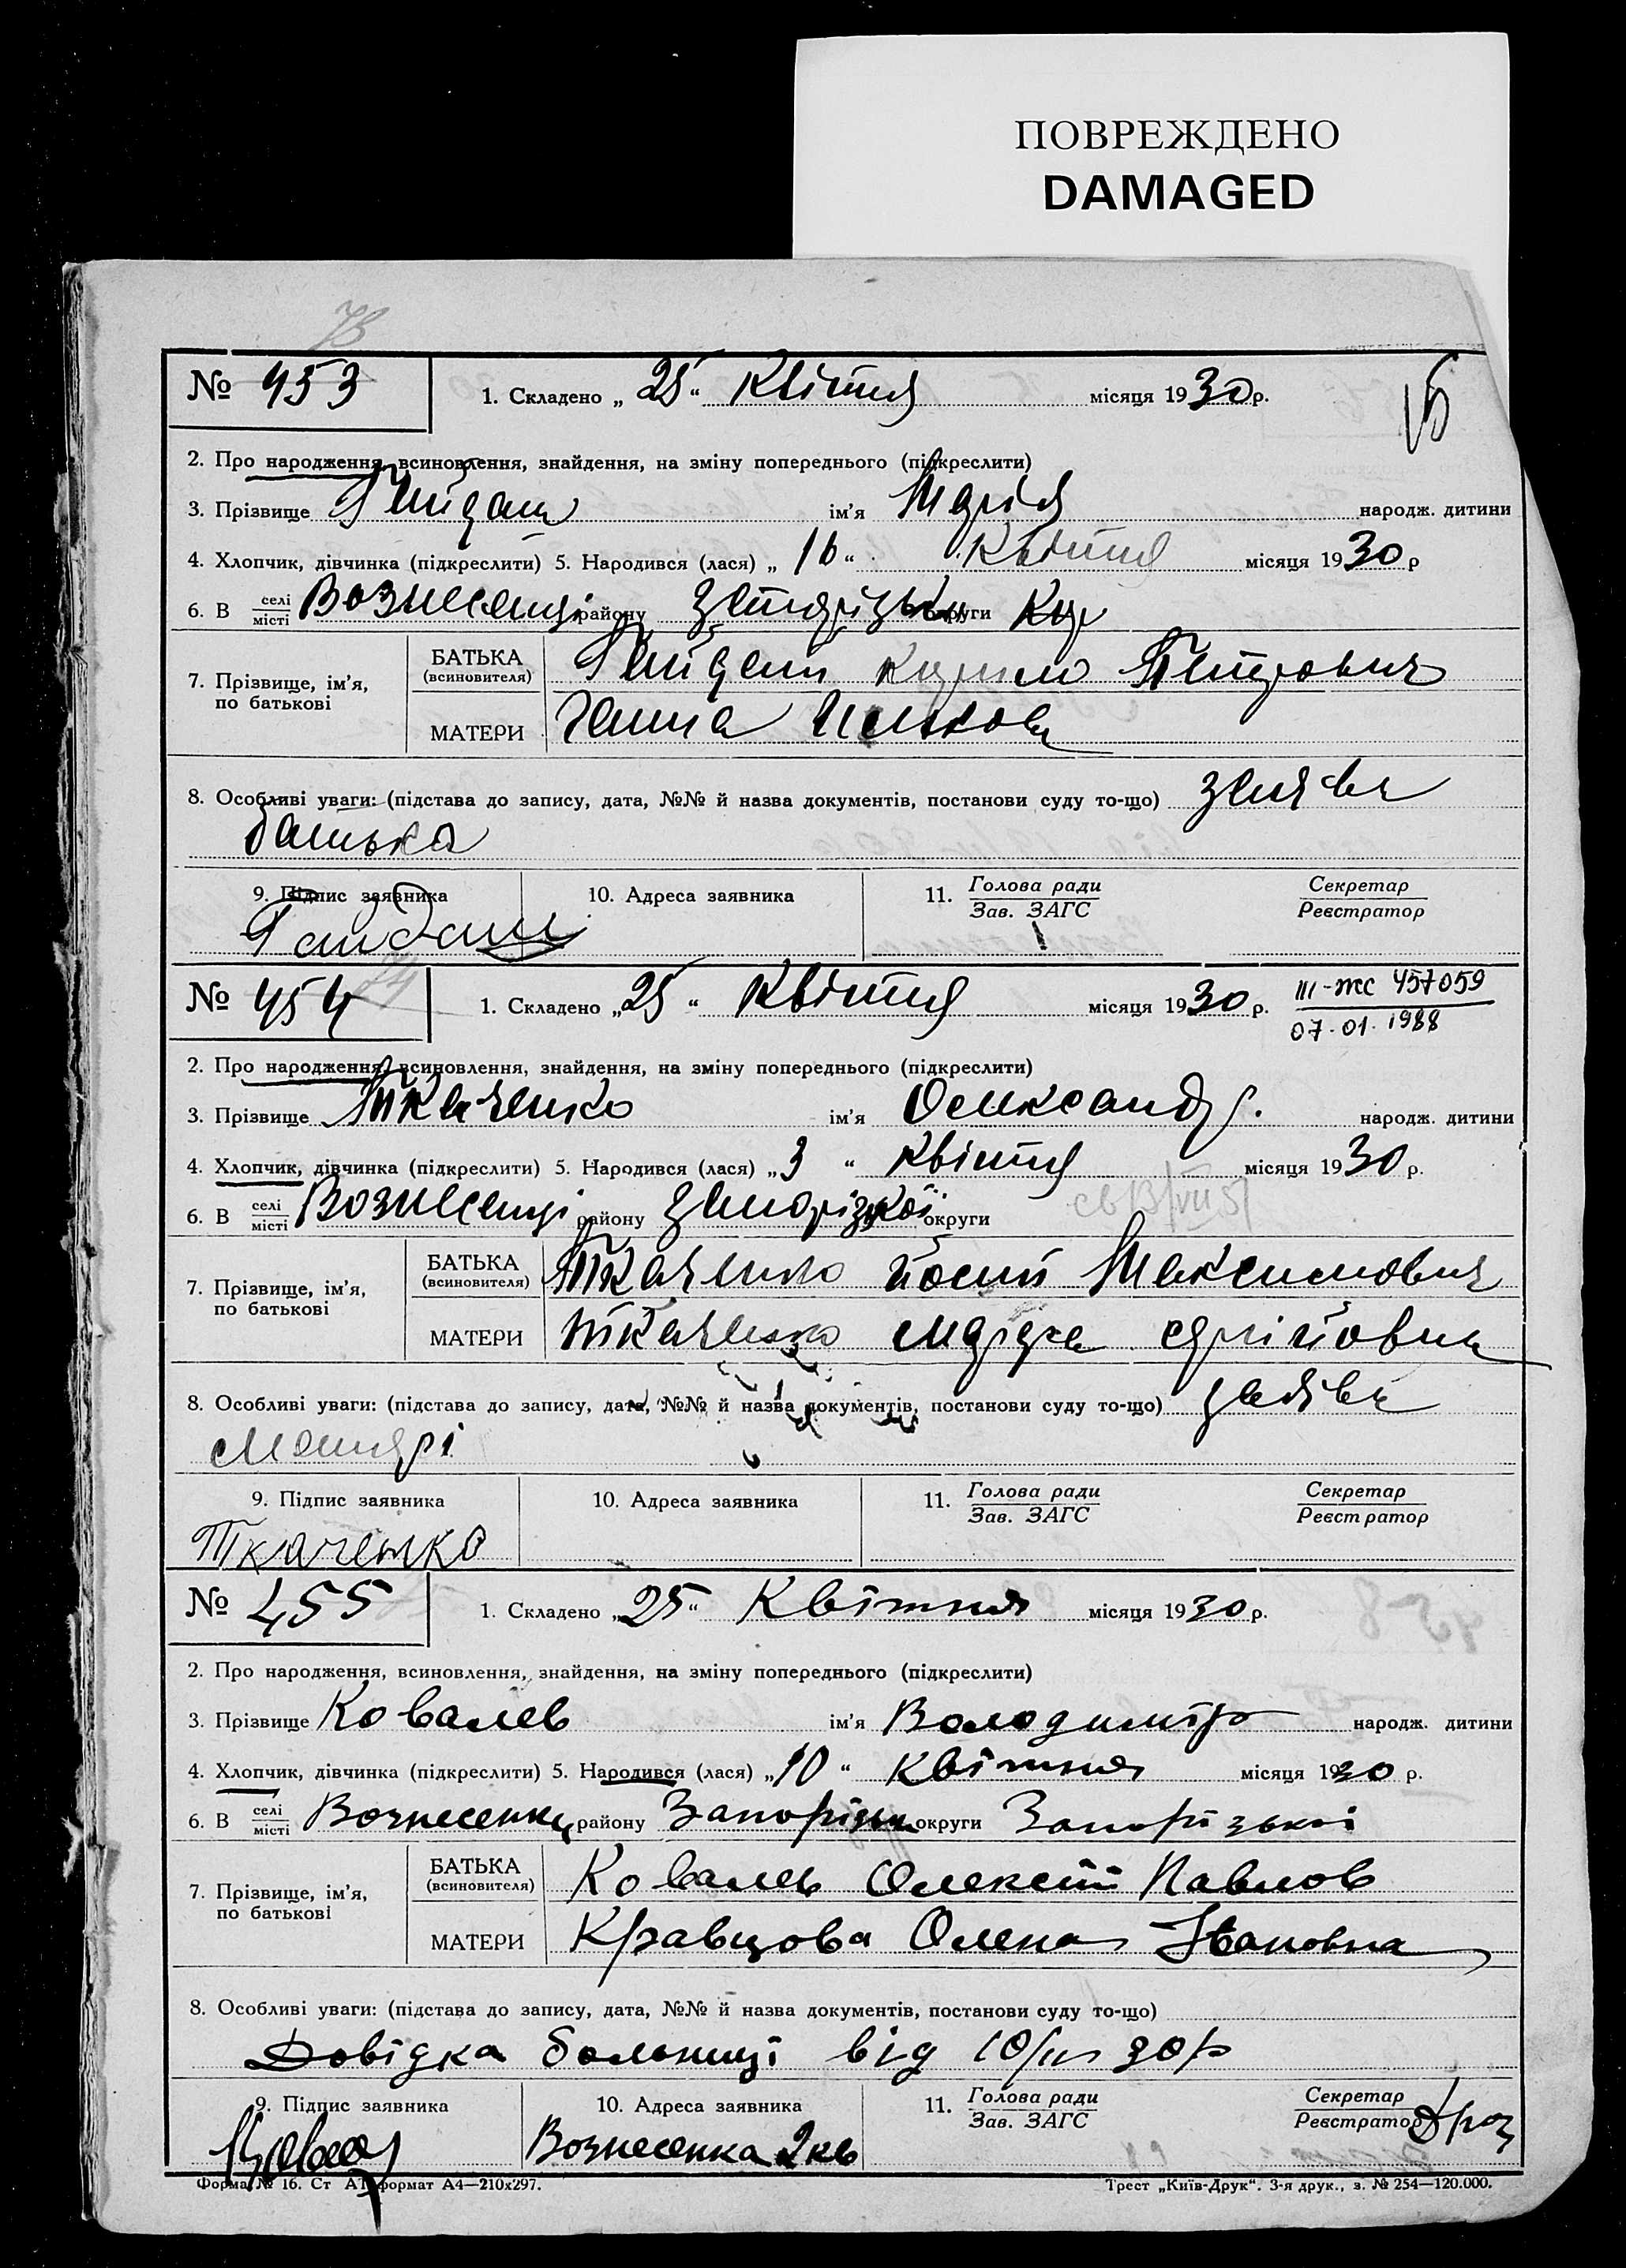 ПОВРЕЖДЕНО
DAMAGED
№ 453 1. Складено „25“ Квітня місяця 1930 р.
2. Про народження, всиновлення, знайдення, на зміну попереднього (підкреслити)
3. Прізвище Гайдаш ім'я Марія народж. дитини
4. Хлопчик, дівчинка (підкреслити) 5. Народився (лася) „16“ Квітня місяця 1930 р
6. В селі/місті Вознесенці району Запорізьки округи
7. Прізвище, ім'я, по батькові
БАТЬКА (всиновителя) Гайдаш Кирило Петрович
МАТЕРИ Ганна
8. Особливі уваги: (підстава до запису, дата, №№ й назва документів, постанови суду то-що) заява
батька
9. Підпис заявника 10. Адреса заявника 11. Голова ради/Зав. ЗАГС Секретар/Реєстратор
Гайдаш
№ 454 1. Складено „25“ Квітня місяця 1930 р. III-ЖС 457059
07.01.1988
2. Про народження, всиновлення, знайдення, на зміну попереднього (підкреслити)
3. Прізвище Ткаченко ім'я Олександр. народж. дитини
4. Хлопчик, дівчинка (підкреслити) 5. Народився (лася) „3“ Квітня місяця 1930 р.
6. В селі/місті Вознесенці району Запорізької округи
7. Прізвище, ім'я, по батькові
БАТЬКА (всиновителя) Ткаченко Йосип Максимович
МАТЕРИ Ткаченко
8. Особливі уваги: (підстава до запису, дата, №№ й назва документів, постанови суду то-що) заява
матері
9. Підпис заявника 10. Адреса заявника 11. Голова ради/Зав. ЗАГС Секретар/Реєстратор
Ткаченко
№ 455 1. Складено „25“ Квітня місяця 1930 р.
2. Про народження, всиновлення, знайдення, на зміну попереднього (підкреслити)
3. Прізвище Ковалев ім'я Володимир народж. дитини
4. Хлопчик, дівчинка (підкреслити) 5. Народився (лася) „10“ Квітня місяця 1930 р.
6. В селі/місті Вознесенку району Запорізьки округи Запорізької
7. Прізвище, ім'я, по батькові
БАТЬКА (всиновителя) Ковалев Олексій Павлов
МАТЕРИ Кравцова Олена Івановна
8. Особливі уваги: (підстава до запису, дата, №№ й назва документів, постанови суду то-що)
Довідка больниці від 10/IV 30 р
9. Підпис заявника 10. Адреса заявника 11. Голова ради/Зав. ЗАГС Секретар/Реєстратор
Вознесенка 2 кв
Форма № 16. Ст А1 формат А4—210х297. Трест „Київ-Друк“. 3-я друк., з. № 254—120.000.